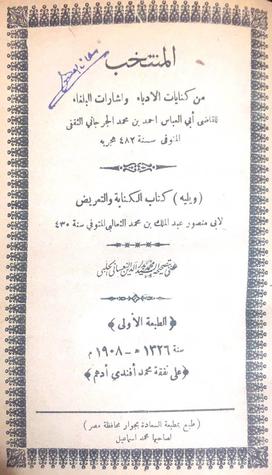 المنتخب
من كنايات الأدباء واشارات البلغاء
للقاضى أبي العباس احمد بن محمد الجرجاني الثقفي
المتوفى سنة ٤٨٢ هجريه
(ويليه) كتاب الكناية والتعريض
لابى منصور عبد الملك بن محمد الثعالبي المتوفي سنة ٤٣٥
عني بتصحيحه السيد محمد بدر الدين النعساني الحلبي
﴿ الطبعة الأولى ﴾
سنة ١٣٢٦ ه – ١٩٠٨ م
﴿ على نفقة محمد أفندي أدهم ﴾
( طبع بمطبعة السعادة بجوار محافظة مصر )
لصاحبها محمد اسماعيل